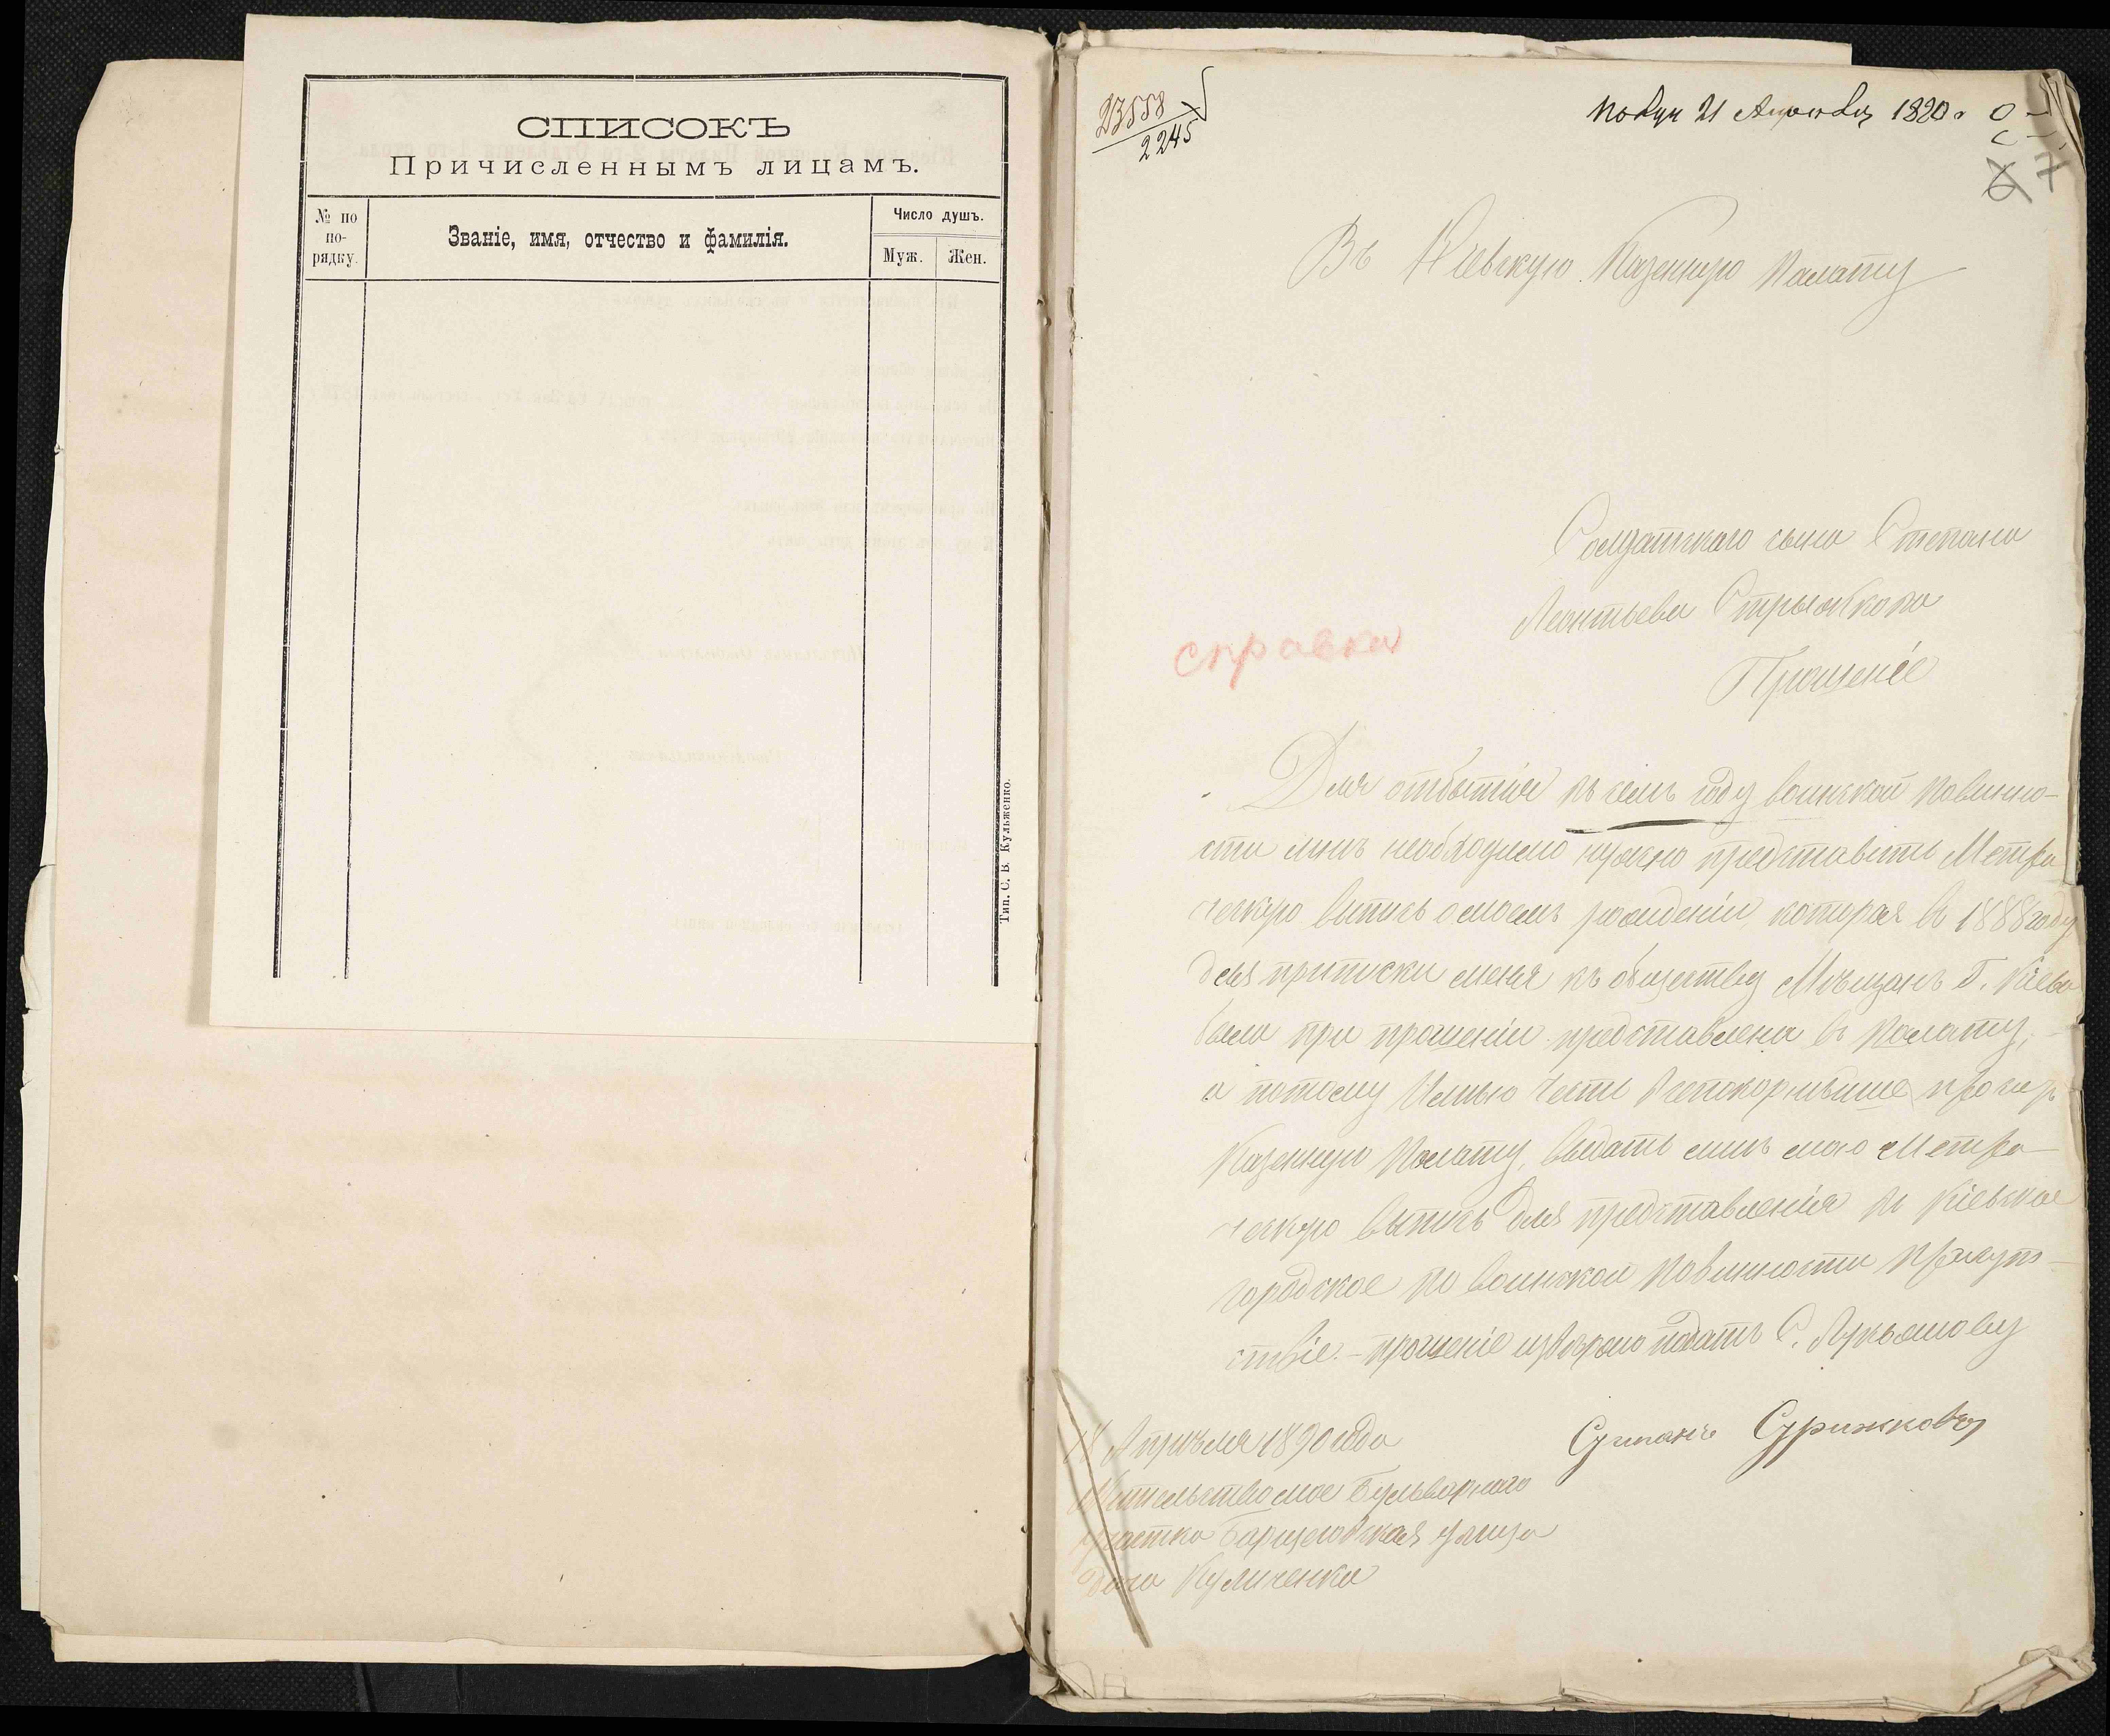 СПИСОКЪ
Причисленнымъ лицамъ.
№ по по-рядку.
Званіе, имя, отчество и фамилія.
Число душъ.
Муж.
Жен.
Тип. С. В. Кульженко.
23558
2245
21 1890 г
6 7
Въ Кіевскую Казенную Палату
Солдатскаго сына Степана
Леонтьева Стрижкова
справка
Прошеніе
Для отбытія въ семъ году воинской повинно-
сти мнѣ необходимо нужно представить Метри
ческую выпись о моемъ рожденіи, которая въ 1888 году
для приписки меня къ обществу Мѣщанъ Г. Кіева
была при прошеніи представлена въ Палату,
а потому Имѣю честь просить
Казенную Палату, выдать мнѣ мою Метри-
ческую выпись для представленія въ Кіевское
городское по воинской повинности присут-
ствіе. - прошеніе подать С. Лукьянову
18 Апрѣля 1890 года
Степанъ Стрижковъ
Жительство мое Бульварнаго
участка улица